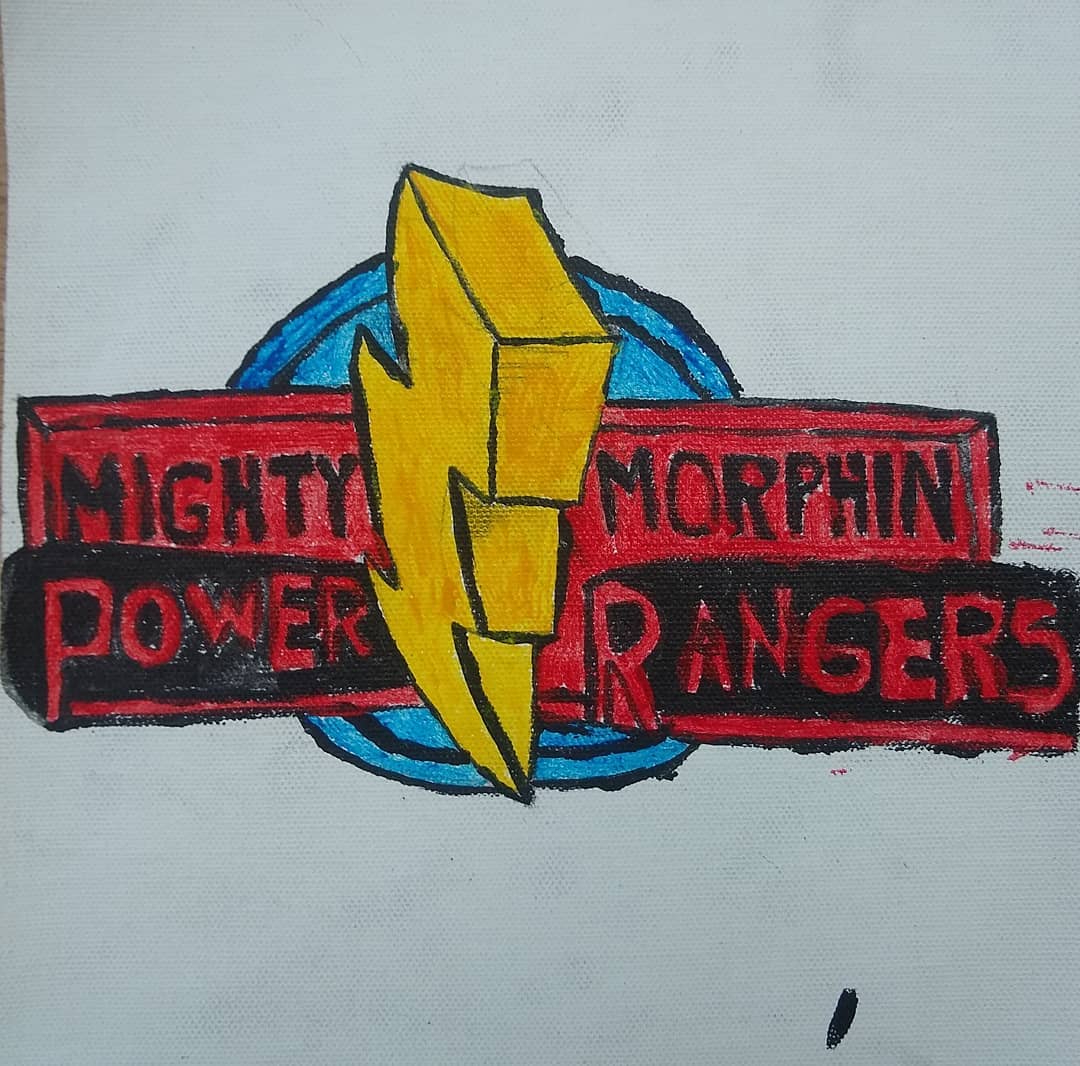 MIGHTY MORPHIN
POWER RANGERS